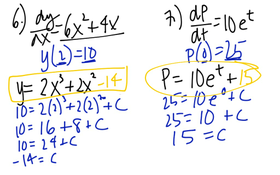 6.) dy/dx = 6x² + 4x
y(2) = 10
y = 2x³ + 2x² - 14
10 = 2(2)³ + 2(2)² + C
10 = 16 + 8 + C
10 = 24 + C
-14 = C
7.) dP/dt = 10eᵗ
P(0) = 25
P = 10eᵗ + 15
25 = 10e⁰ + C
25 = 10 + C
15 = C